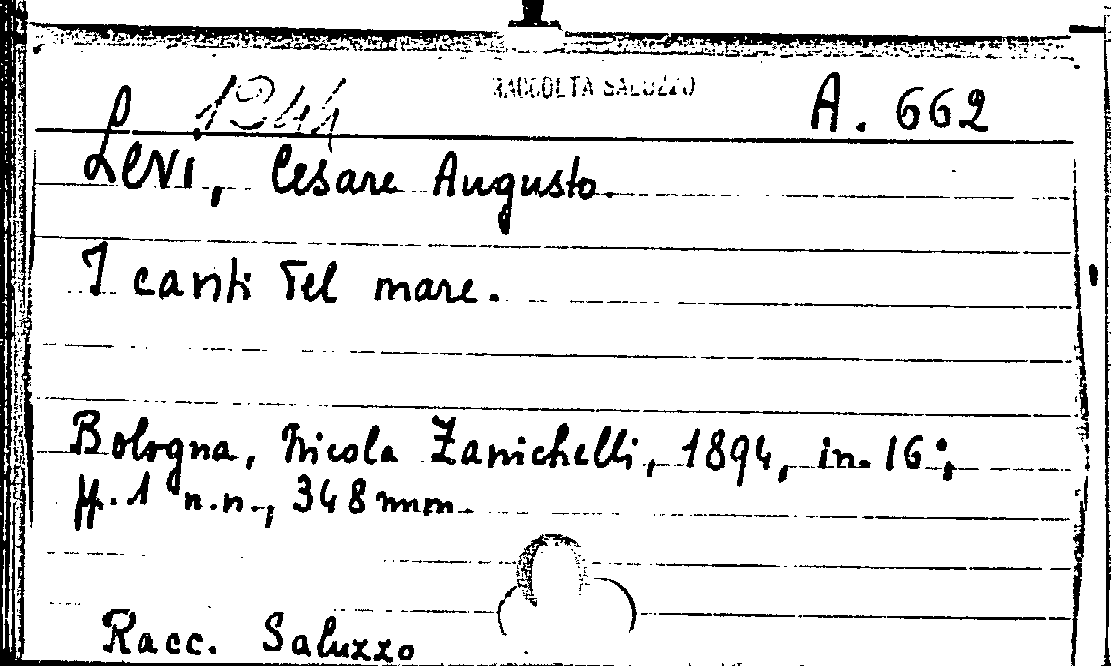 1244 RACCOLTA SALUZZO A. 662
Levi, Cesare Augusto.
I canti del mare.
Bologna, Nicola Zanichelli, 1894, in-16°,
pp. 1 n.n., 348 num.
Racc. Saluzzo